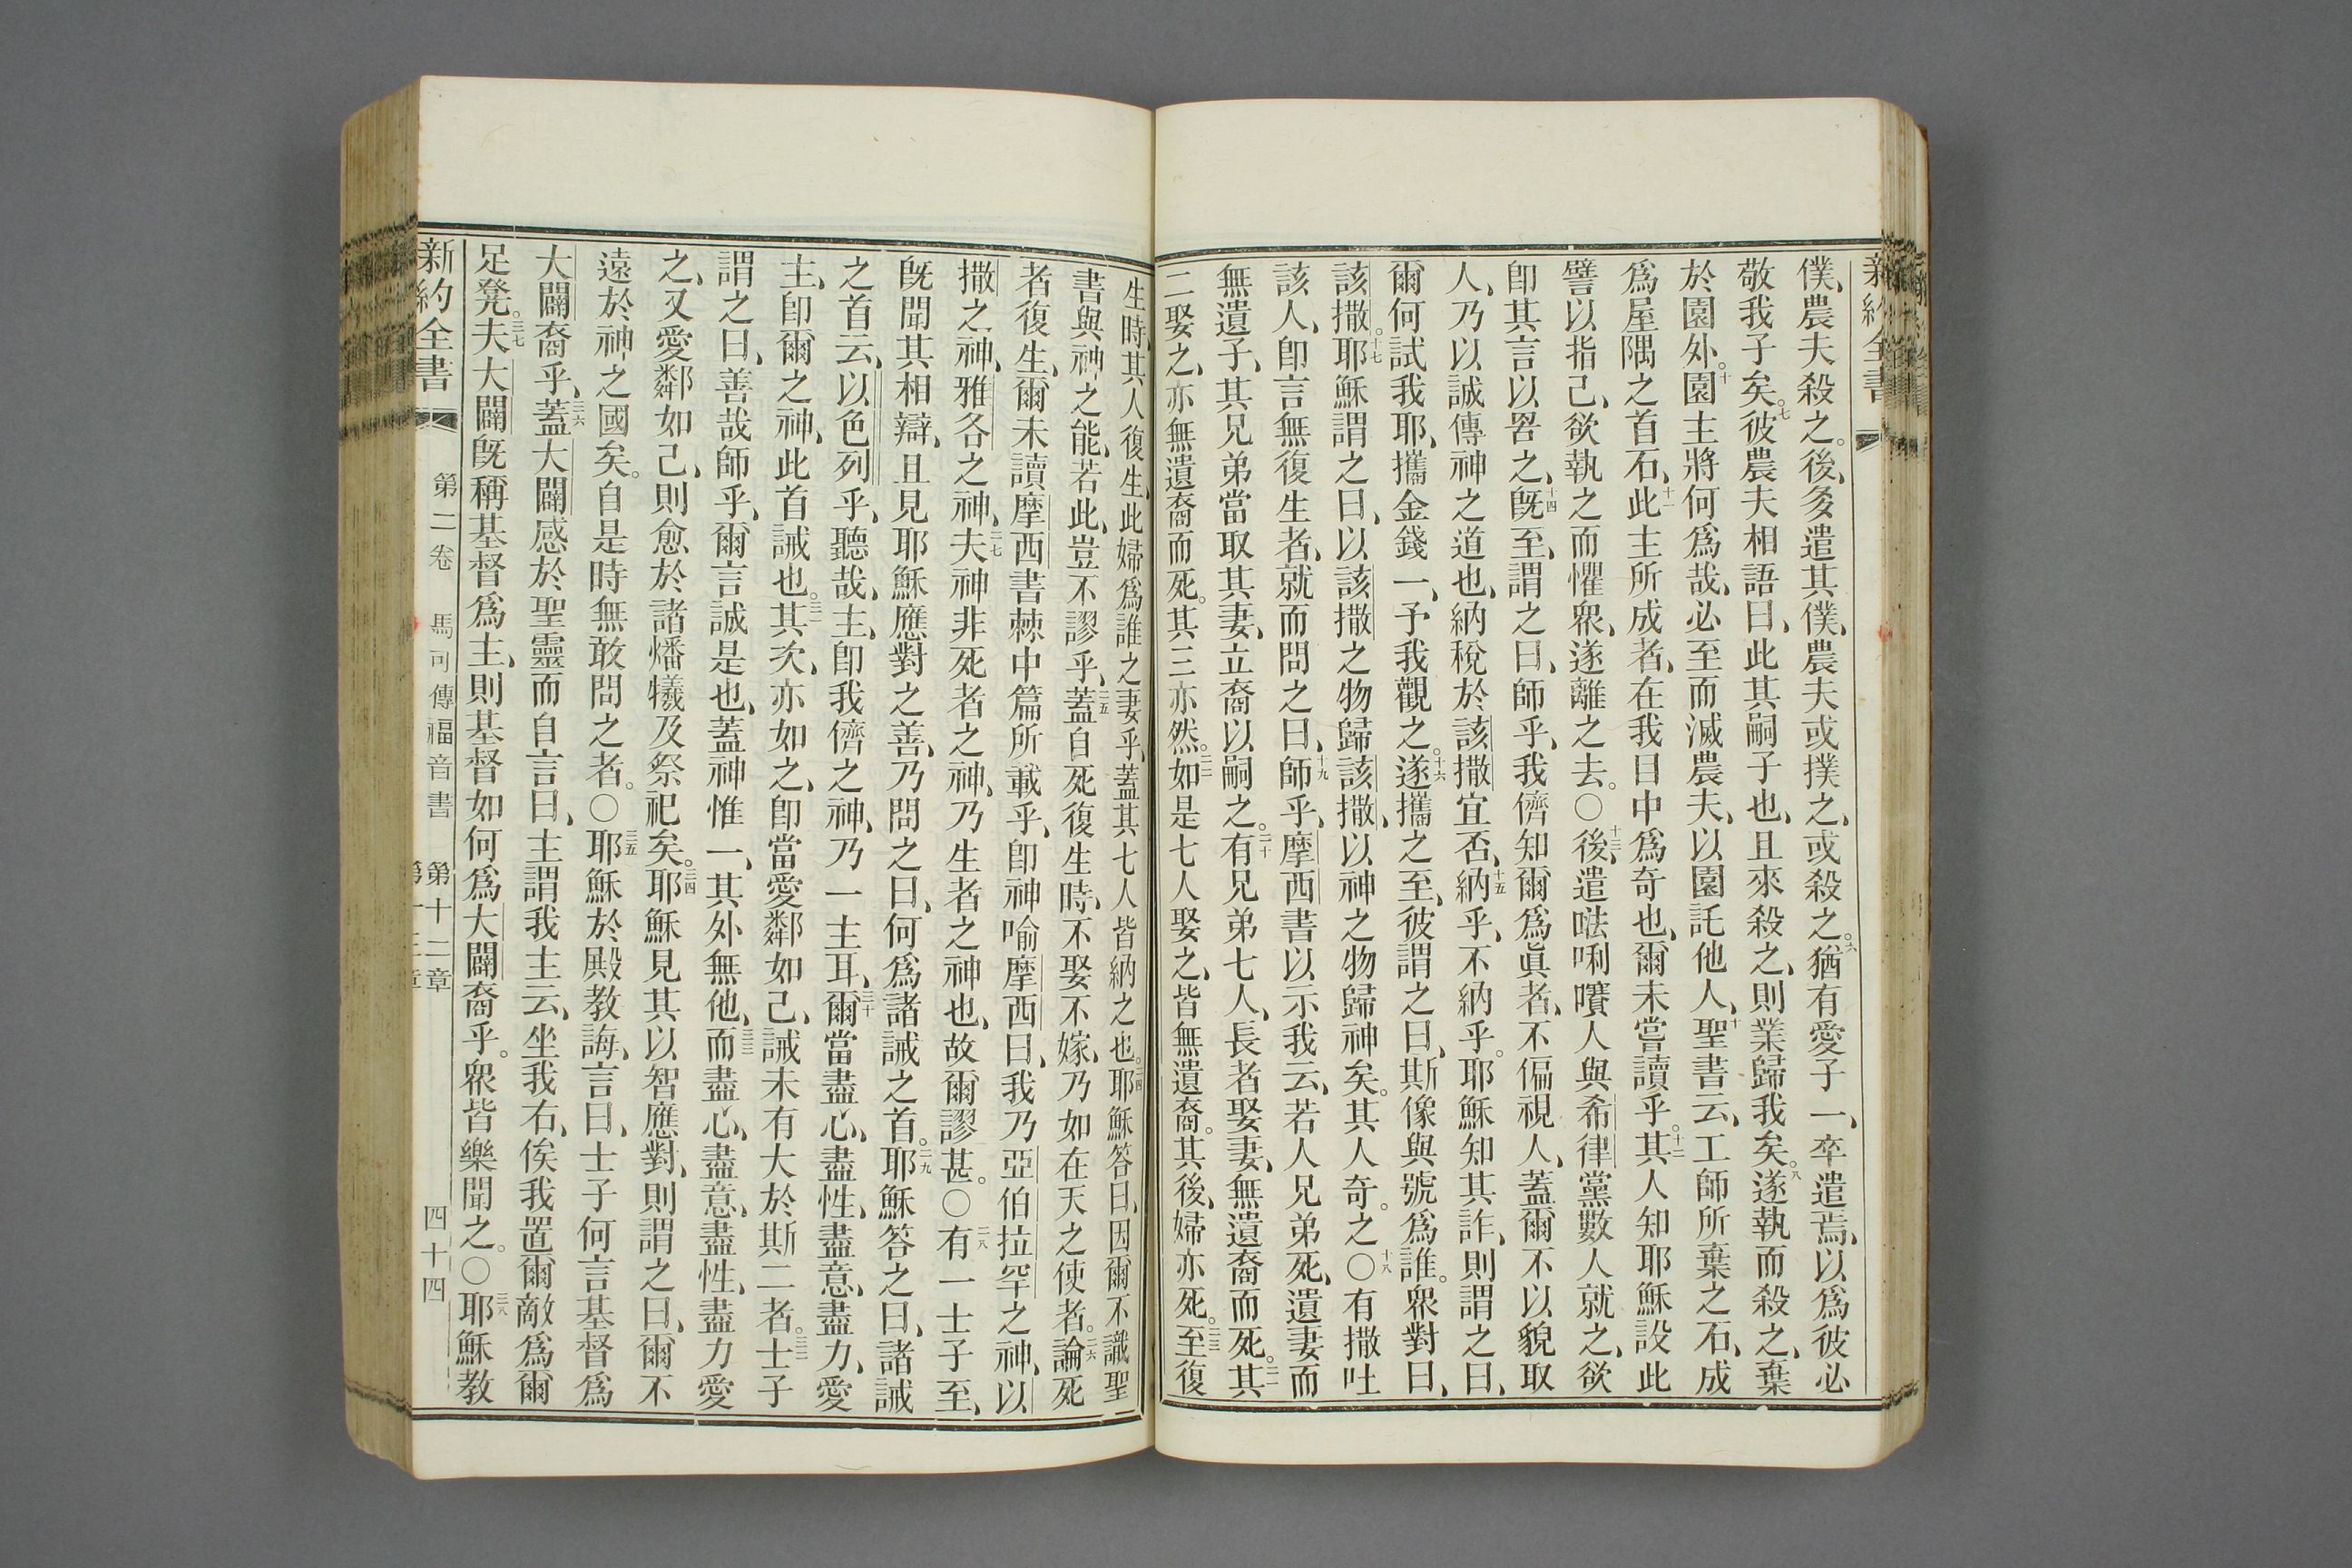 新約全書
僕、農夫殺之。後、多遣其僕、農夫或撲之、或殺之。六猶有愛子一、卒遣焉、以爲彼必
敬我子矣。七彼農夫相語曰、此其嗣子也、且來殺之、則業歸我矣。八遂執而殺之、棄
於園外。九園主將何爲哉、必至而滅農夫、以園託他人、十聖書云、工師所棄之石、成
爲屋隅之首石、十一此主所成者、在我目中爲奇也、爾未嘗讀乎。十二其人知耶穌設此
譬以指己、欲執之而懼衆、遂離之去。〇十三後、遣𠵽唎㘔人與希律黨數人就之、欲
卽其言以罟之、十四旣至、謂之曰、師乎、我儕知爾爲眞者、不偏視人、蓋爾不以貌取
人、乃以誠傳神之道也、納稅於該撒宜否、十五納乎、不納乎。耶穌知其詐、則謂之曰、
爾何試我耶、攜金錢一、予我觀之。十六遂攜之至、彼謂之曰、斯像與號爲誰。衆對曰、
該撒。十七耶穌謂之曰、以該撒之物歸該撒、以神之物歸神矣。其人奇之。〇十八有撒吐
該人、卽言無復生者、就而問之曰、十九師乎、摩西書以示我云、若人兄弟死、遺妻而
無遺子、其兄弟當取其妻、立裔以嗣之。二十有兄弟七人、長者娶妻、無遺裔而死。二一其
二娶之、亦無遺裔而死。其三亦然。二二如是七人娶之、皆無遺裔。其後、婦亦死。二三至復
生時、其人復生、此婦爲誰之妻乎、蓋其七人皆納之也。二四耶穌答曰、因爾不識聖
書與神之能、若此、豈不謬乎、二五蓋自死復生時、不娶不嫁、乃如在天之使者。二六論死
者復生、爾未讀摩西書棘中篇所載乎、卽神喻摩西曰、我乃亞伯拉罕之神、以
撒之神、雅各之神、二七夫神非死者之神、乃生者之神也、故爾謬甚。〇二八有一士子至、
旣聞其相辯、且見耶穌應對之善、乃問之曰、何爲諸誡之首。二九耶穌答之曰、諸誡
之首云、以色列乎、聽哉、主、卽我儕之神、乃一主耳、三十爾當盡心、盡性、盡意、盡力、愛
主、卽爾之神、此首誡也。三一其次、亦如之、卽當愛鄰如己、誡未有大於斯二者。三二士子
謂之曰、善哉師乎、爾言誠是也、蓋神惟一、其外無他、三三而盡心、盡意、盡性、盡力愛
之、又愛鄰如己、則愈於諸燔犧及祭祀矣。三四耶穌見其以智應對、則謂之曰、爾不
遠於神之國矣。自是時無敢問之者。〇三五耶穌於殿教誨、言曰、士子何言基督爲
大闢裔乎、三六蓋大闢感於聖靈而自言曰、主謂我主云、坐我右、俟我置爾敵爲爾
足凳。三七夫大闢旣稱基督爲主、則基督如何爲大闢裔乎。衆皆樂聞之。〇三八耶穌教
新約全書 第二卷 馬可傳福音書 第十二章 四十四